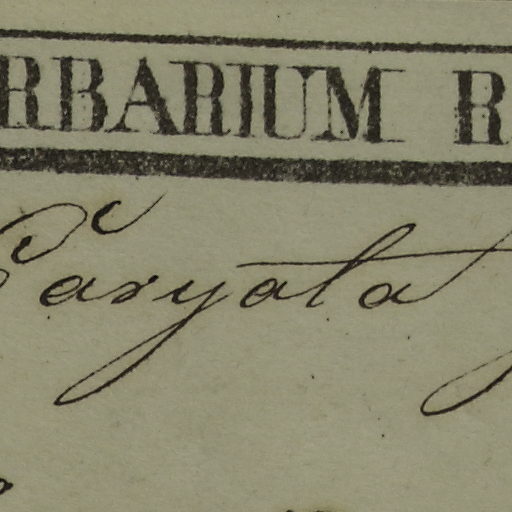 RBARIUM R
Caryota